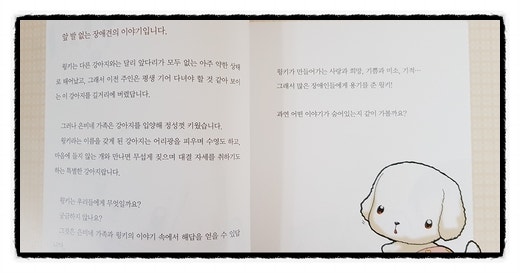 앞 발 없는 장애견의 이야기입니다.
윙키는 다른 강아지와는 달리 앞다리가 모두 없는 아주 약한 상태
로 태어났고, 그래서 이전 주인은 평생 기어 다녀야 할 것 같아 보이
는 이 강아지를 길거리에 버렸답니다.
그러나 은비네 가족은 강아지를 입양해 정성껏 키웠습니다.
윙키라는 이름을 갖게 된 강아지는 어리광을 피우며 수영도 하고,
마음에 들지 않는 개와 만나면 무섭게 짖으며 대결 자세를 취하기도
하는 특별한 강아지랍니다.
윙키는 우리들에게 무엇일까요?
궁금하지 않나요?
그것은 은비네 가족과 윙키의 이야기 속에서 해답을 얻을 수 있답
니다.
윙키가 만들어가는 사랑과 희망, 기쁨과 미소, 기적…
그래서 많은 장애인들에게 용기를 준 윙키!
과연 어떤 이야기가 숨어있는지 같이 가볼까요?